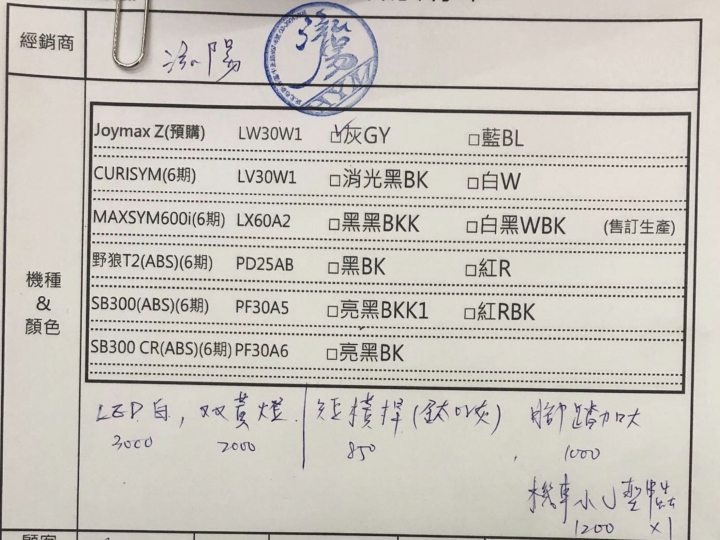 經銷商
鴻陽
SYM
Joymax Z(預購) LW30W1 ☑灰GY □藍BL
CURISYM(6期) LV30W1 □消光黑BK □白W
MAXSYM600i(6期) LX60A2 □黑黑BKK □白黑WBK (售訂生產)
野狼T2(ABS)(6期) PD25AB □黑BK □紅R
機種
&
顏色
SB300(ABS)(6期) PF30A5 □亮黑BKK1 □紅RBK
SB300 CR(ABS)(6期) PF30A6 □亮黑BK
LED白, 双黃燈 短橫捍(鈦灰) 腳踏加大
3000 2000 850 1000
機車小U型
1200 x1
顧客